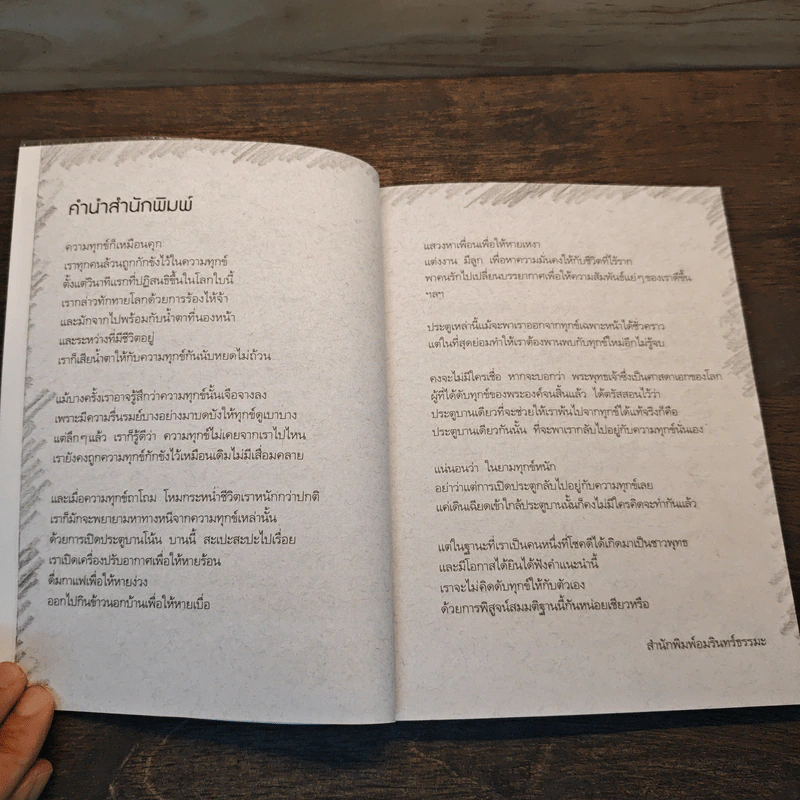 คำนำสำนักพิมพ์
ความทุกข์ก็เหมือนคุก
เราทุกคนล้วนถูกกักขังไว้ในความทุกข์
ตั้งแต่วินาทีแรกที่ปฏิสนธิขึ้นในโลกใบนี้
เรากล่าวทักทายโลกด้วยการร้องไห้จ้า
และมักจากไปพร้อมกับน้ำตาที่นองหน้า
และระหว่างที่มีชีวิตอยู่
เราก็เสียน้ำตาให้กับความทุกข์กันนับหยดไม่ถ้วน
แม้บางครั้งเราอาจรู้สึกว่าความทุกข์นั้นเจือจางลง
เพราะมีความรื่นรมย์บางอย่างมาบดบังให้ทุกข์ดูเบาบาง
แต่ลึกๆ แล้ว เราก็รู้ดีว่า ความทุกข์ไม่เคยจากเราไปไหน
เรายังคงถูกความทุกข์กักขังไว้เหมือนเดิมไม่มีเสื่อมคลาย
และเมื่อความทุกข์ถาโถม โหมกระหน่ำชีวิตเราหนักกว่าปกติ
เราก็มักจะพยายามหาทางหนีจากความทุกข์เหล่านั้น
ด้วยการเปิดประตูบานโน้น บานนี้ สะเปะสะปะไปเรื่อย
เราเปิดเครื่องปรับอากาศเพื่อให้หายร้อน
ดื่มกาแฟเพื่อให้หายง่วง
ออกไปกินข้าวนอกบ้านเพื่อให้หายเบื่อ
แสวงหาเพื่อนเพื่อให้หายเหงา
แต่งงาน มีลูก เพื่อหาความมั่นคงให้กับชีวิตที่ไร้ราก
พาคนรักไปเปลี่ยนบรรยากาศเพื่อให้ความสัมพันธ์แย่ๆ ของเราดีขึ้น
ฯลฯ
ประตูเหล่านี้แม้จะพาเราออกจากทุกข์เฉพาะหน้าได้ชั่วคราว
แต่ในที่สุดย่อมทำให้เราต้องพานพบกับทุกข์ใหม่อีกไม่รู้จบ
คงจะไม่มีใครเชื่อ หากจะบอกว่า พระพุทธเจ้าซึ่งเป็นศาสดาเอกของโลก
ผู้ที่ได้ดับทุกข์ของพระองค์จนสิ้นแล้ว ได้ตรัสสอนไว้ว่า
ประตูบานเดียวที่จะช่วยให้เราพ้นไปจากทุกข์ได้แท้จริงก็คือ
ประตูบานเดียวกันนั้น ที่จะพาเรากลับไปอยู่กับความทุกข์นั่นเอง
แน่นอนว่า ในยามทุกข์หนัก
อย่าว่าแต่การเปิดประตูกลับไปอยู่กับความทุกข์เลย
แค่เดินเฉียดเข้าใกล้ประตูบานนั้นก็คงไม่มีใครคิดจะทำกันแล้ว
แต่ในฐานะที่เราเป็นคนหนึ่งที่โชคดีได้เกิดมาเป็นชาวพุทธ
และมีโอกาสได้ยินได้ฟังคำแนะนำนี้
เราจะไม่คิดดับทุกข์ให้กับตัวเอง
ด้วยการพิสูจน์สมมติฐานนี้กันหน่อยเชียวหรือ
สำนักพิมพ์อมรินทร์ธรรมะ